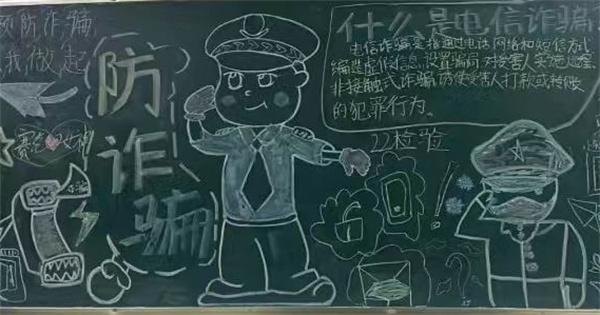 预防诈骗
我做起
防
诈
骗
什么是电信诈骗
电信诈骗是指通过电话网络和短信方式
编造虚假信息,设置骗局,对受害人实施远程
非接触式诈骗,防使受害人打款或转账
的犯罪行为。
22检验